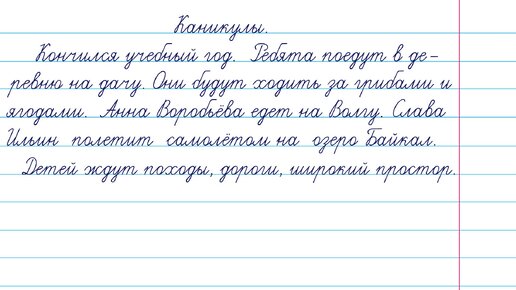 Каникулы.
Кончился учебный год. Ребята поедут в де-
ревню на дачу. Они будут ходить за грибами и
ягодами. Анна Воробьёва едет на Волгу. Слава
Ильин полетит самолётом на озеро Байкал.
Детей ждут походы, дороги, широкий простор.